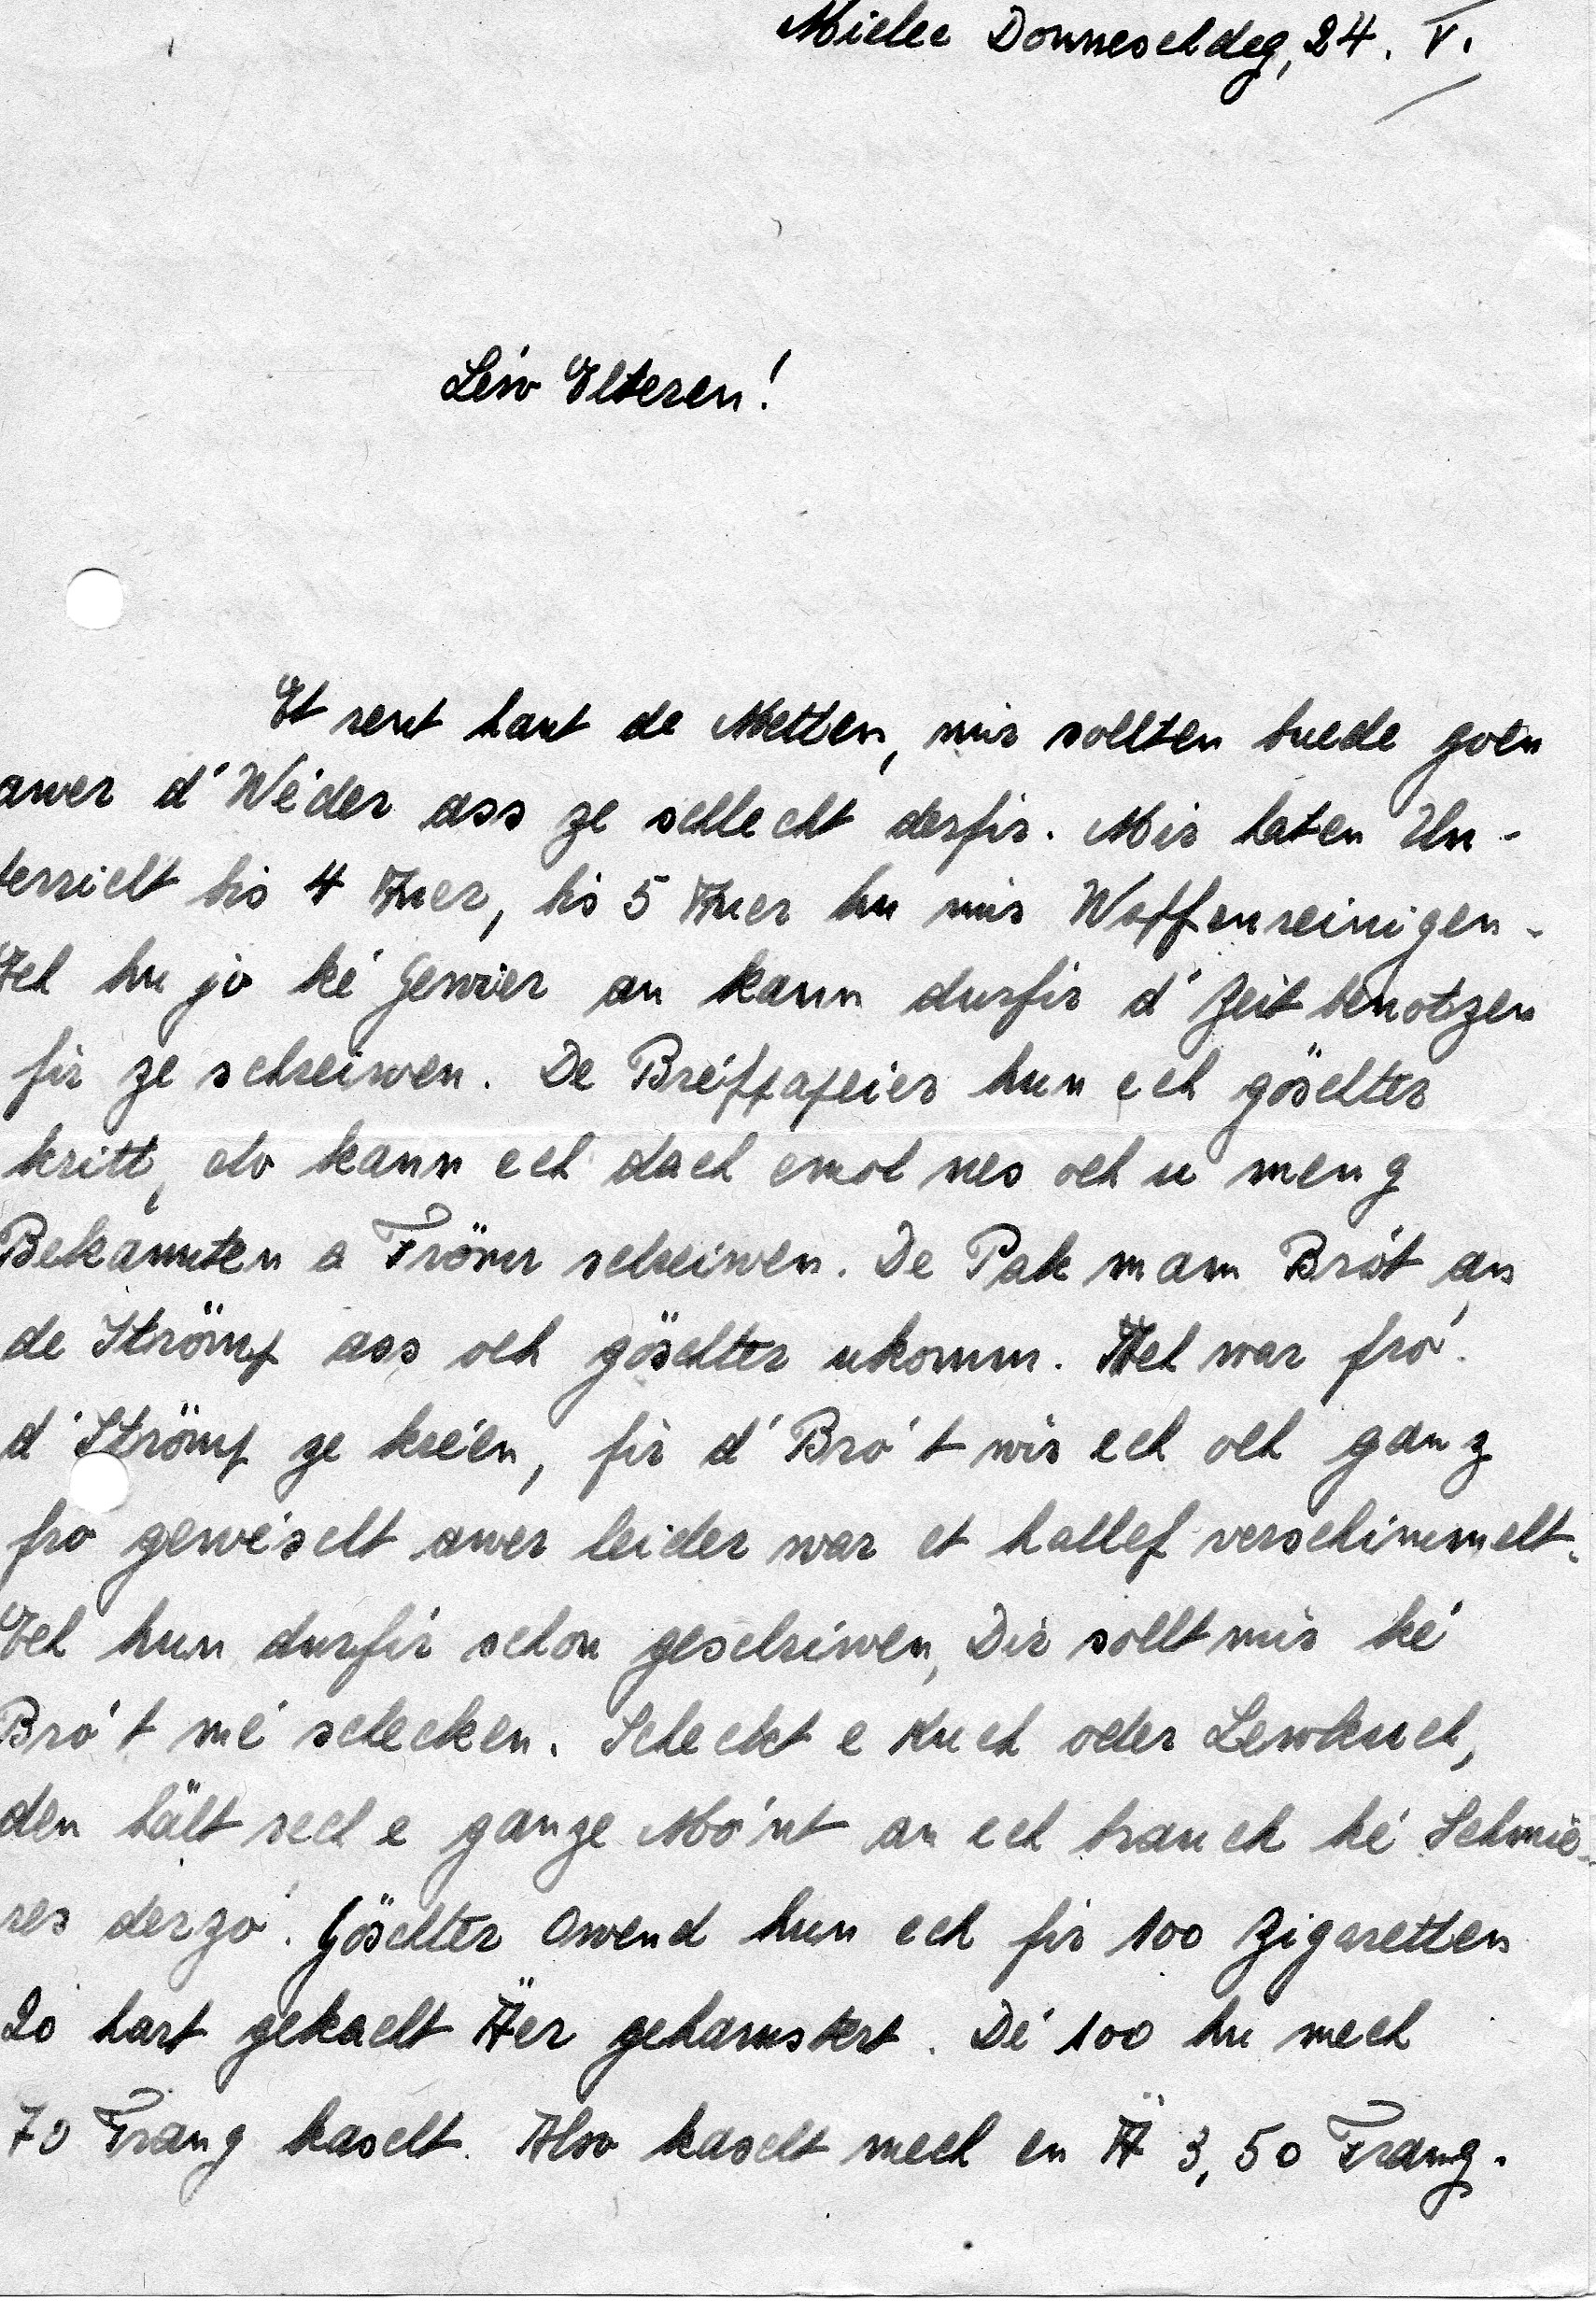 Mielec Donneschdeg, 24. V.
Léiw Elteren!
Et rent haut de Metten, mir sollten buede goen
awer d'Wéder ass ze schlecht derfir. Mir haten Un-
terricht bis 4 Auer, bis 5 Auer hu mir Waffenreinigen.
Ech hu jo ké Gewier an kann durfir d'Zeit benotzen
fir ze schreiwen. De Bréifpapeier hun ech göschter
kritt, elo kann ech dach emol nes och u meng
Bekannten a Frönn schreiwen. De Pak mam Brót an
de Strömp ass och göschter ukomm. Ech war fró
d'Strömp ze kréen, fir d'Bró't wir ech och ganz
fro gewéscht awer leider war et hallef verschimmelt.
Ech hun durfir schon geschriwen, Dir sollt mir ké
Bró't mé schecken. Scheckt e Kuch oder Lewkuch,
den hält sech e ganze Mó'nt an ech brauch ké Schmie-
res derzó. Göschter Owend hun ech fir 100 Zigaretten
20 hart gekacht Äer gehamstert. Dé 100 hu mech
70 Frang kascht. Also kascht mech en Ä 3,50 Frang.